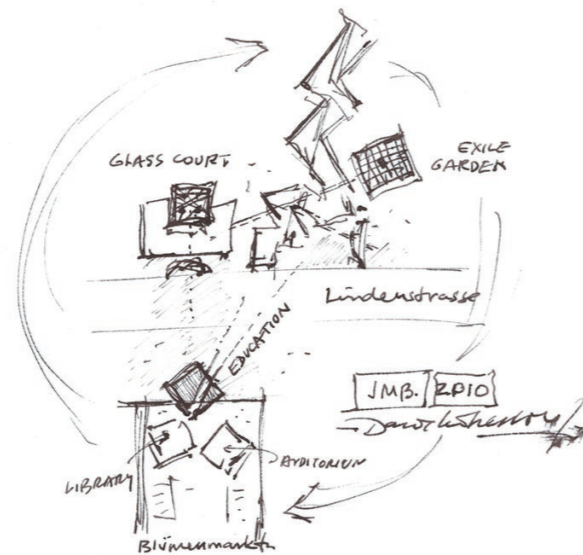 GLASS COURT
EXILE
GARDEN
Lindenstrasse
EDUCATION
JMB. 2010
LIBRARY
AUDITORIUM
Blümenmarkt